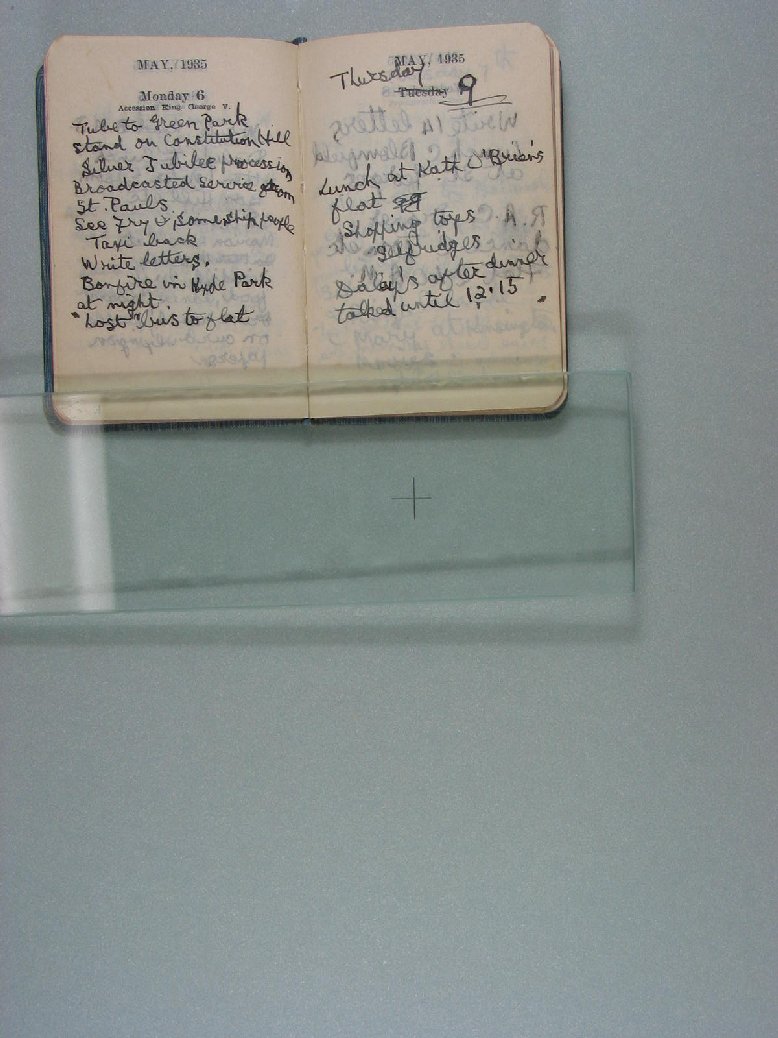 MAY, 1935
Monday 6
Accession King George V.
Tube to Green Park
stand on Constitution Hill
Silver Jubilee procession
Broadcasted Service from
St. Pauls
See Fry & some ship people
Taxi back
Write letters.
Bonfire in Hyde Park
at night.
"Lost" bus to flat
MAY, 1935
Thursday
Tuesday 9
Lunch at Kath O'Briens
flat
Shopping tops
Selfridges
Dalays after dinner
talked until 12.15